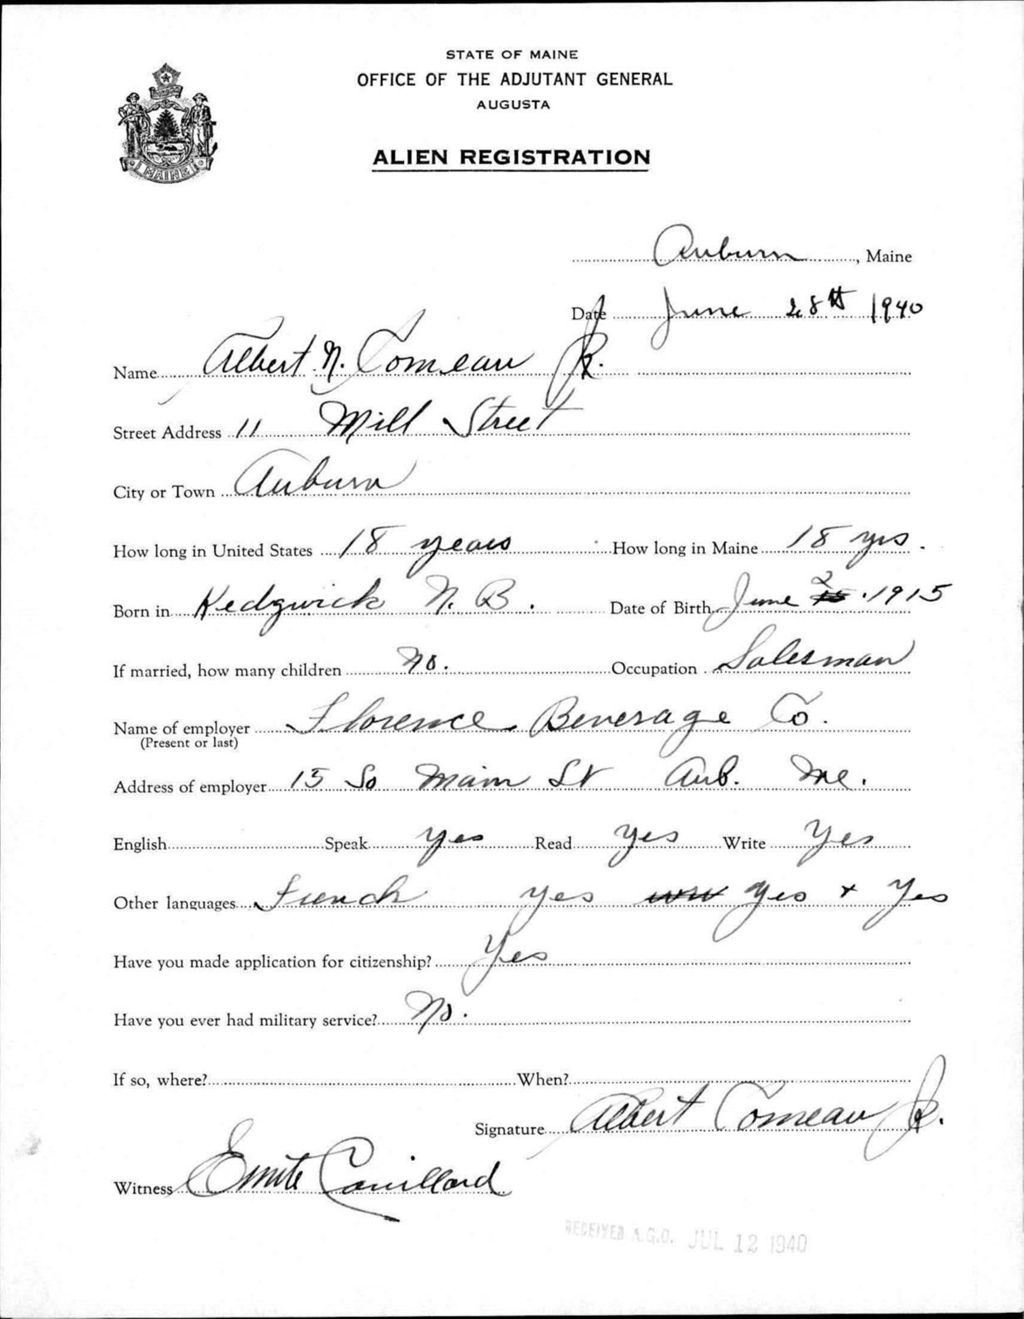 STATE OF MAINE
OFFICE OF THE ADJUTANT GENERAL
AUGUSTA
ALIEN REGISTRATION
MAINE
Auburn, Maine
Date June 28th 1940
Name Albert N. Comeau Jr.
Street Address 11 Mill Street
City or Town Auburn
How long in United States 18 years How long in Maine 18 yrs.
Born in Kedgwick N. B. Date of Birth June 2 1915
If married, how many children No. Occupation Salesman
Name of employer Florence Beverage Co.
(Present or last)
Address of employer 15 So Main St Aub. Me.
English Speak Yes Read Yes Write Yes
Other languages French yes yes + Yes
Have you made application for citizenship? Yes
Have you ever had military service? No.
If so, where? When?
Signature Albert Comeau Jr.
Witness Emile Couillard
RECEIVED A.G.O. JUL 12 1940